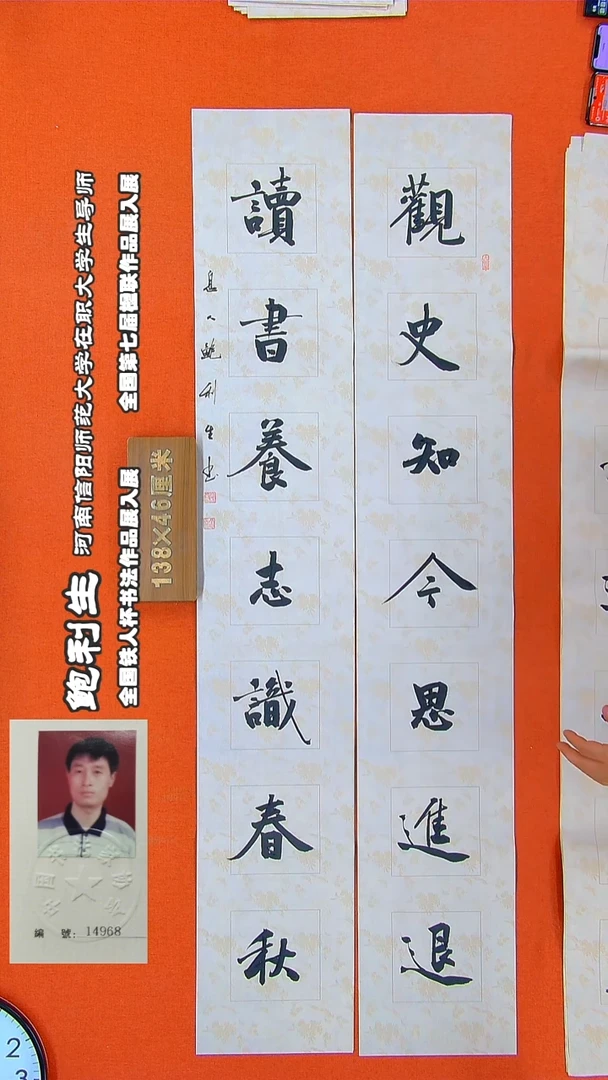 觀史知今思進退
讀書養志識春秋
息人鮑利生书
鲍利生
河南信阳师范大学在职大学生导师
全国第七届楹联作品展入展
全国铁人杯书法作品展入展
138×46厘米
編 號: 14968
2
3